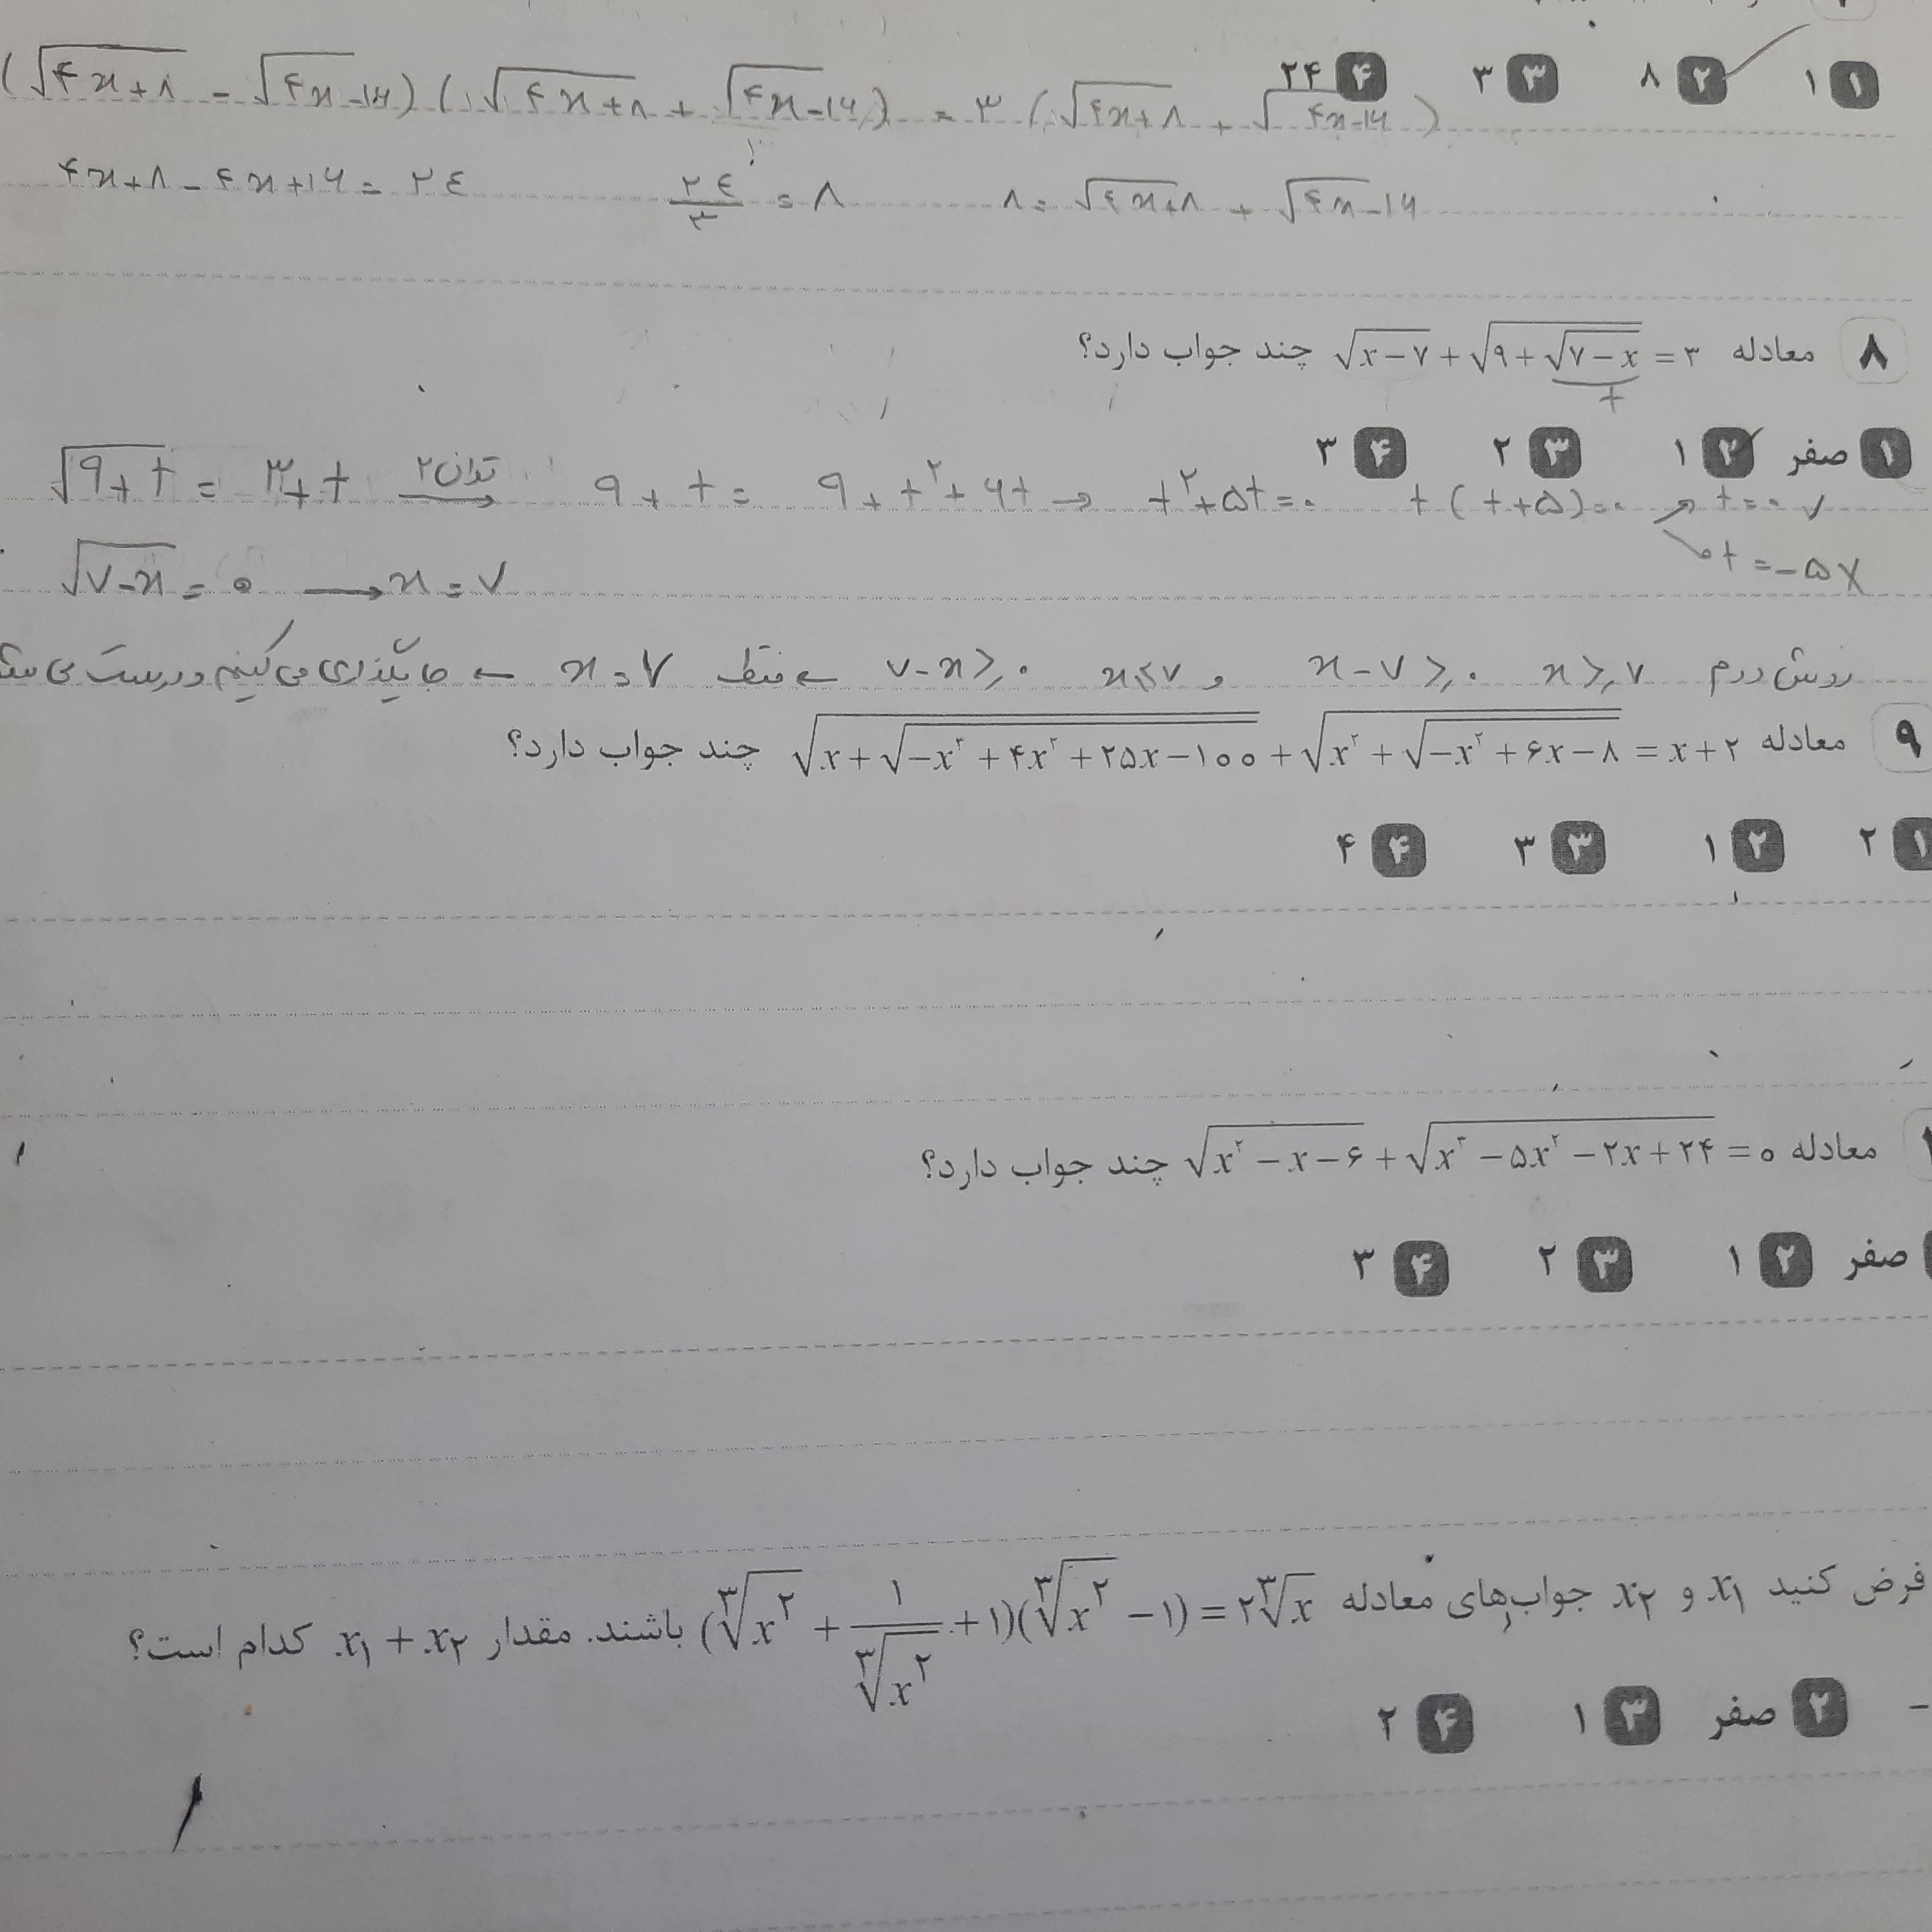 ۱ ۱ ۲ ۸ ۳ ۳ ۴ ۲۴
(√(۴x+۸) - √(۴x-۱۶)) (√(۴x+۸) + √(۴x-۱۶)) = ۳ (√(۴x+۸) + √(۴x-۱۶))
۴x+۸-۴x+۱۶=۲٤ ۲٤/۳ = ۸ ۸ = √(۴x+۸) + √(۴x-۱۶)
۸ معادله √(x-۷) + √(۹+√(۷-x)) = ۳ چند جواب دارد؟
t
۱ صفر ۲ ۱ ۳ ۲ ۴ ۳
√(۹+t) = ۳+t توان۲ → ۹+t = ۹+t²+۶t → t²+۵t=۰ t(t+۵)=۰ → t=۰ ✓
t=-۵ X
√(۷-x) = ۰ → x=۷
روش دوم x≥۷ x-۷≥۰ و x≤۷ ۷-x≥۰ ← فقط x=۷ ← جایگذاری می‌کنیم و درست می
۹ معادله √(x+√(-x³+۴x²+۲۵x-۱۰۰)) + √(x²+√(-x²+۶x-۸)) = x+۲ چند جواب دارد؟
۱ ۲ ۲ ۱ ۳ ۳ ۴ ۴
معادله √(x²-x-۶) + √(x³-۵x²-۲x+۲۴) = ۰ چند جواب دارد؟
صفر ۲ ۱ ۳ ۲ ۴ ۳
فرض کنید x₁ و x₂ جواب‌های معادله (∛x² + ۱/∛x² + ۱)(∛x² - ۱) = ۲∛x باشند. مقدار x₁ + x₂ کدام است؟
۲ صفر ۳ ۱ ۴ ۲